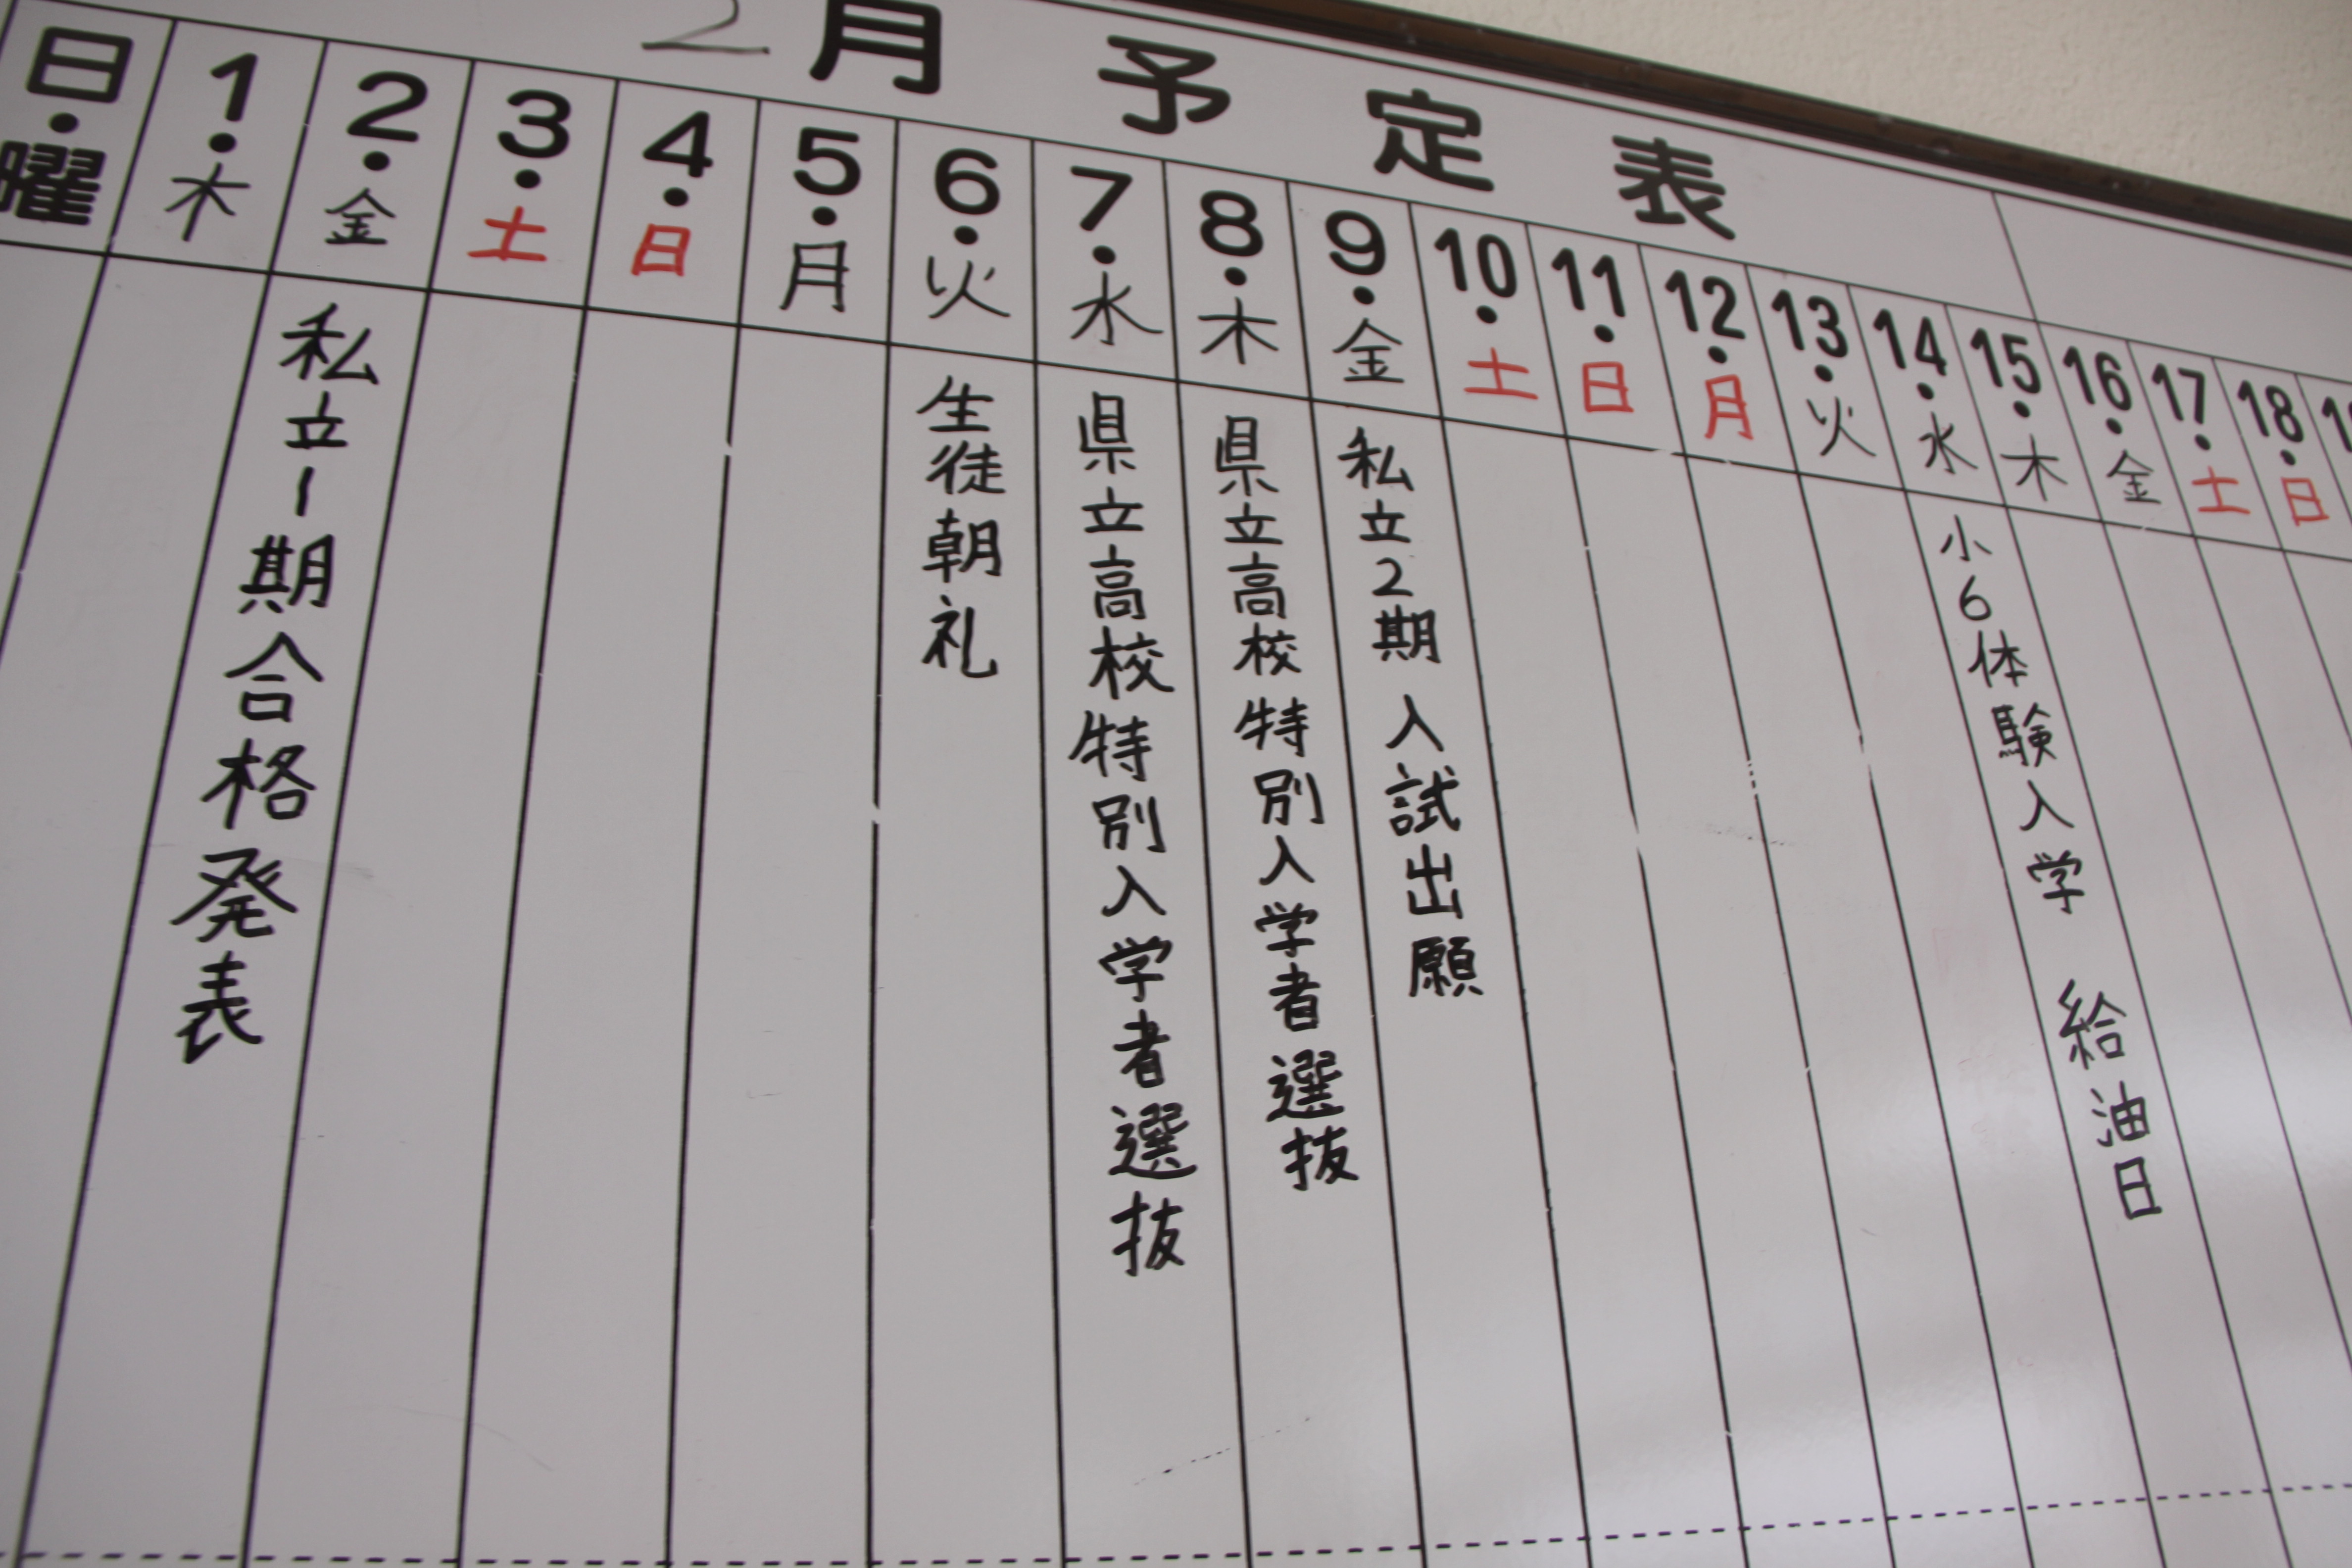 2月予定表
日・曜
1・木
2・金
私立1期合格発表
3・土
4・日
5・月
6・火
生徒朝礼
7・水
県立高校特別入学者選抜
8・木
県立高校特別入学者選抜
9・金
私立2期入試出願
10・土
11・日
12・月
13・火
14・水
小6体験入学 給油日
15・木
16・金
17・土
18・日